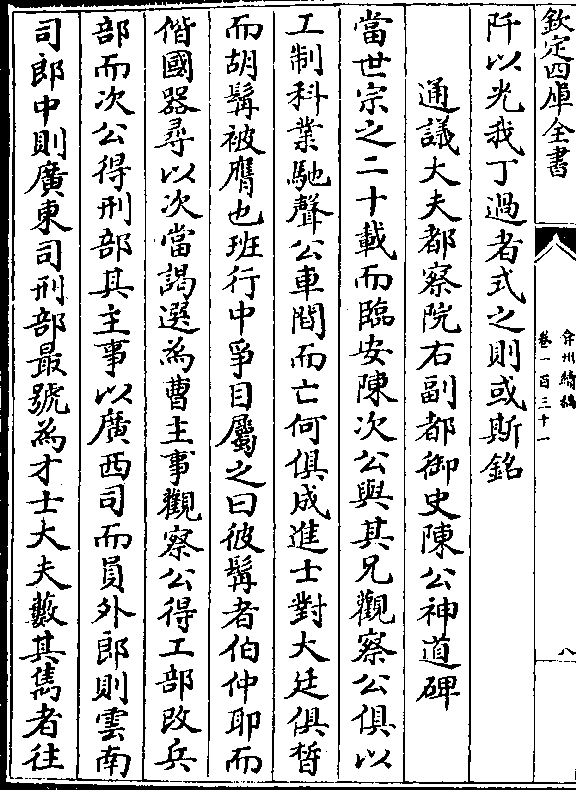 欽定四庫全書
弇州續稿
卷一百三十一
八
阡以光我丁過者式之則或斯銘
通議大夫都察院右副都御史陳公神道碑
當世宗之二十載而臨安陳次公與其兄觀察公俱以
工制科業馳聲公車間而亡何俱成進士對大廷俱晳
而胡髯被膺也班行中爭目屬之曰彼髯者伯仲耶而
偕國器尋以次當謁選為曹主事觀察公得工部改兵
部而次公得刑部其主事以廣西司而員外郎則雲南
司郎中則廣東司刑部最號為才士大夫藪其雋者往